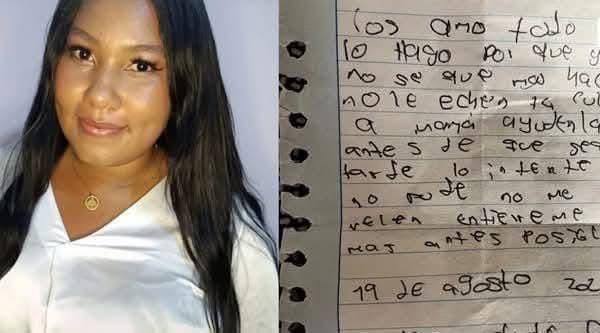 los amo todo
lo hago por que y
no se que mas hac
no le echen la cul
a mamá ayudenla
antes de que sea
tarde lo intente
no pude no me
velen entiereme
mas antes posible
19 de agosto 202